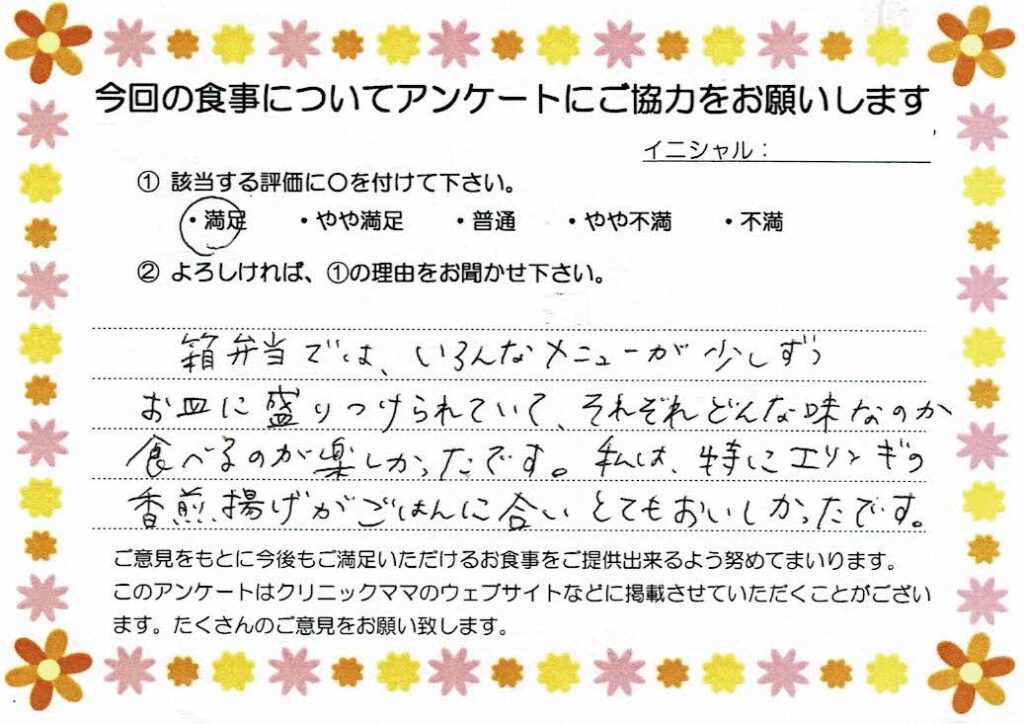 今回の食事についてアンケートにご協力をお願いします
イニシャル：
① 該当する評価に○を付けて下さい。
・満足 ・やや満足 ・普通 ・やや不満 ・不満
② よろしければ、①の理由をお聞かせ下さい。
箱弁当では、いろんなメニューが少しずつ
お皿に盛りつけられていて、それぞれどんな味なのか
食べるのが楽しかったです。私は、特にエリンギの
香煎揚げがごはんに合いとてもおいしかったです。
ご意見をもとに今後もご満足いただけるお食事をご提供出来るよう努めてまいります。
このアンケートはクリニックママのウェブサイトなどに掲載させていただくことがござい
ます。たくさんのご意見をお願い致します。